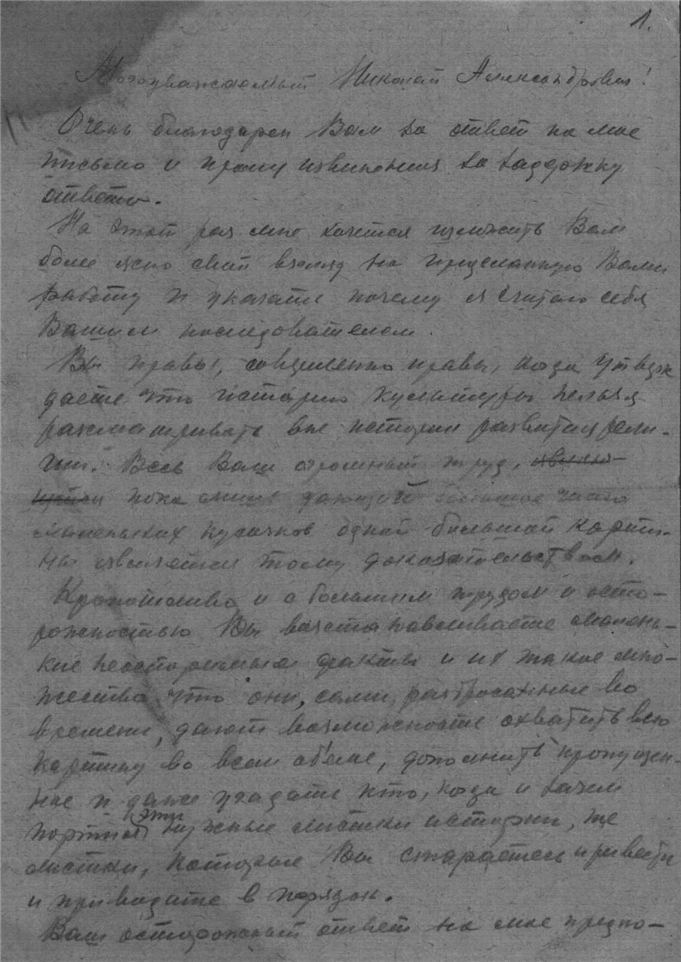 1.
Многоуважаемый Николай Александрович!
Очень благодарен Вам за ответ на мое
письмо и прошу извинения за задержку
ответа.
На этот раз мне хочется изложить Вам
более ясно свой взгляд на присланную Вами
работу и указать почему я считаю себя
Вашим последователем.
Вы правы, совершенно правы, когда утверж
даете что историю культуры нельзя
рассматривать вне истории развития рели-
гии. Весь Ваш огромный труд,
пока лишь дающий большое число
маленьких кусочков одной большой карти-
ны является тому доказательством.
Кропотливо и с большим трудом и осто-
рожностью Вы восстанавливаете малень-
кие неоспоримые факты и их такое мно-
жество что они, сами разбросанные во
времени, дают возможность охватить всю
картину во всем объеме, дополнить пропущен-
ное и даже угадать кто, когда и зачем
портил эти нужные листики истории, те
листки, которые Вы стараетесь привести
и приводите в порядок.
Ваш осторожный ответ на мое предпо-